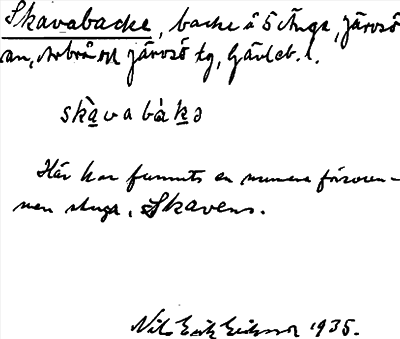 Skavabacke, backe å 5 Änga, Järvsö
sn, Arbrå och Järvsö tg, Gävleb. l.
skàvabàkə
Här har funnits en numera försvun-
nen stuga, Skavens.
Nils Erik Eriksson 1935.